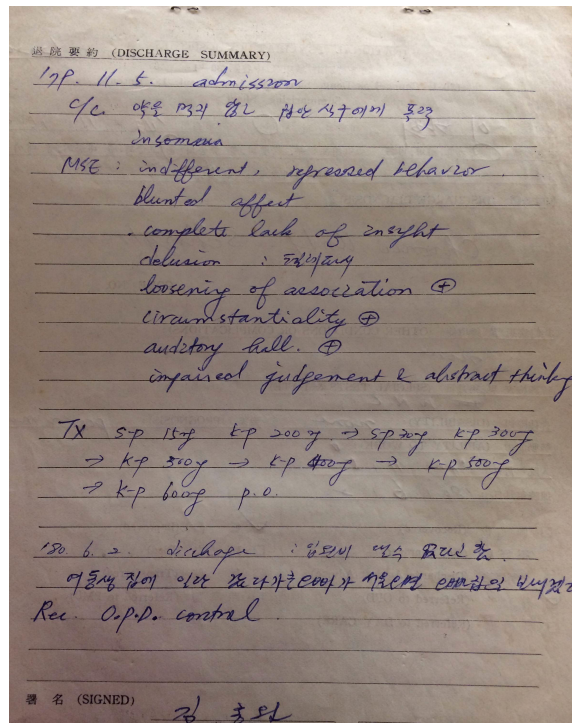 退院要約 (DISCHARGE SUMMARY)
'79. 11. 5. admission
c/c. 약을 먹지 않고 집안 식구에게 폭력
insomnia
MSE : indifferent, regressed behavior.
blunted affect
. complete lack of insight
delusion :
loosening of association ⊕
circumstantiality ⊕
auditory hall. ⊕
impaired judgement & abstract thinking
Tx s-p 15mg k-p 200mg → s-p 30mg k-p 300mg
→ k-p 500mg → k-p 400mg → k-p 500mg
→ k-p 600mg p.o.
'80. 6. 2. discharge : 입원비
여동생 집에
Rec. O.P.D. control.
署名 (SIGNED)
김